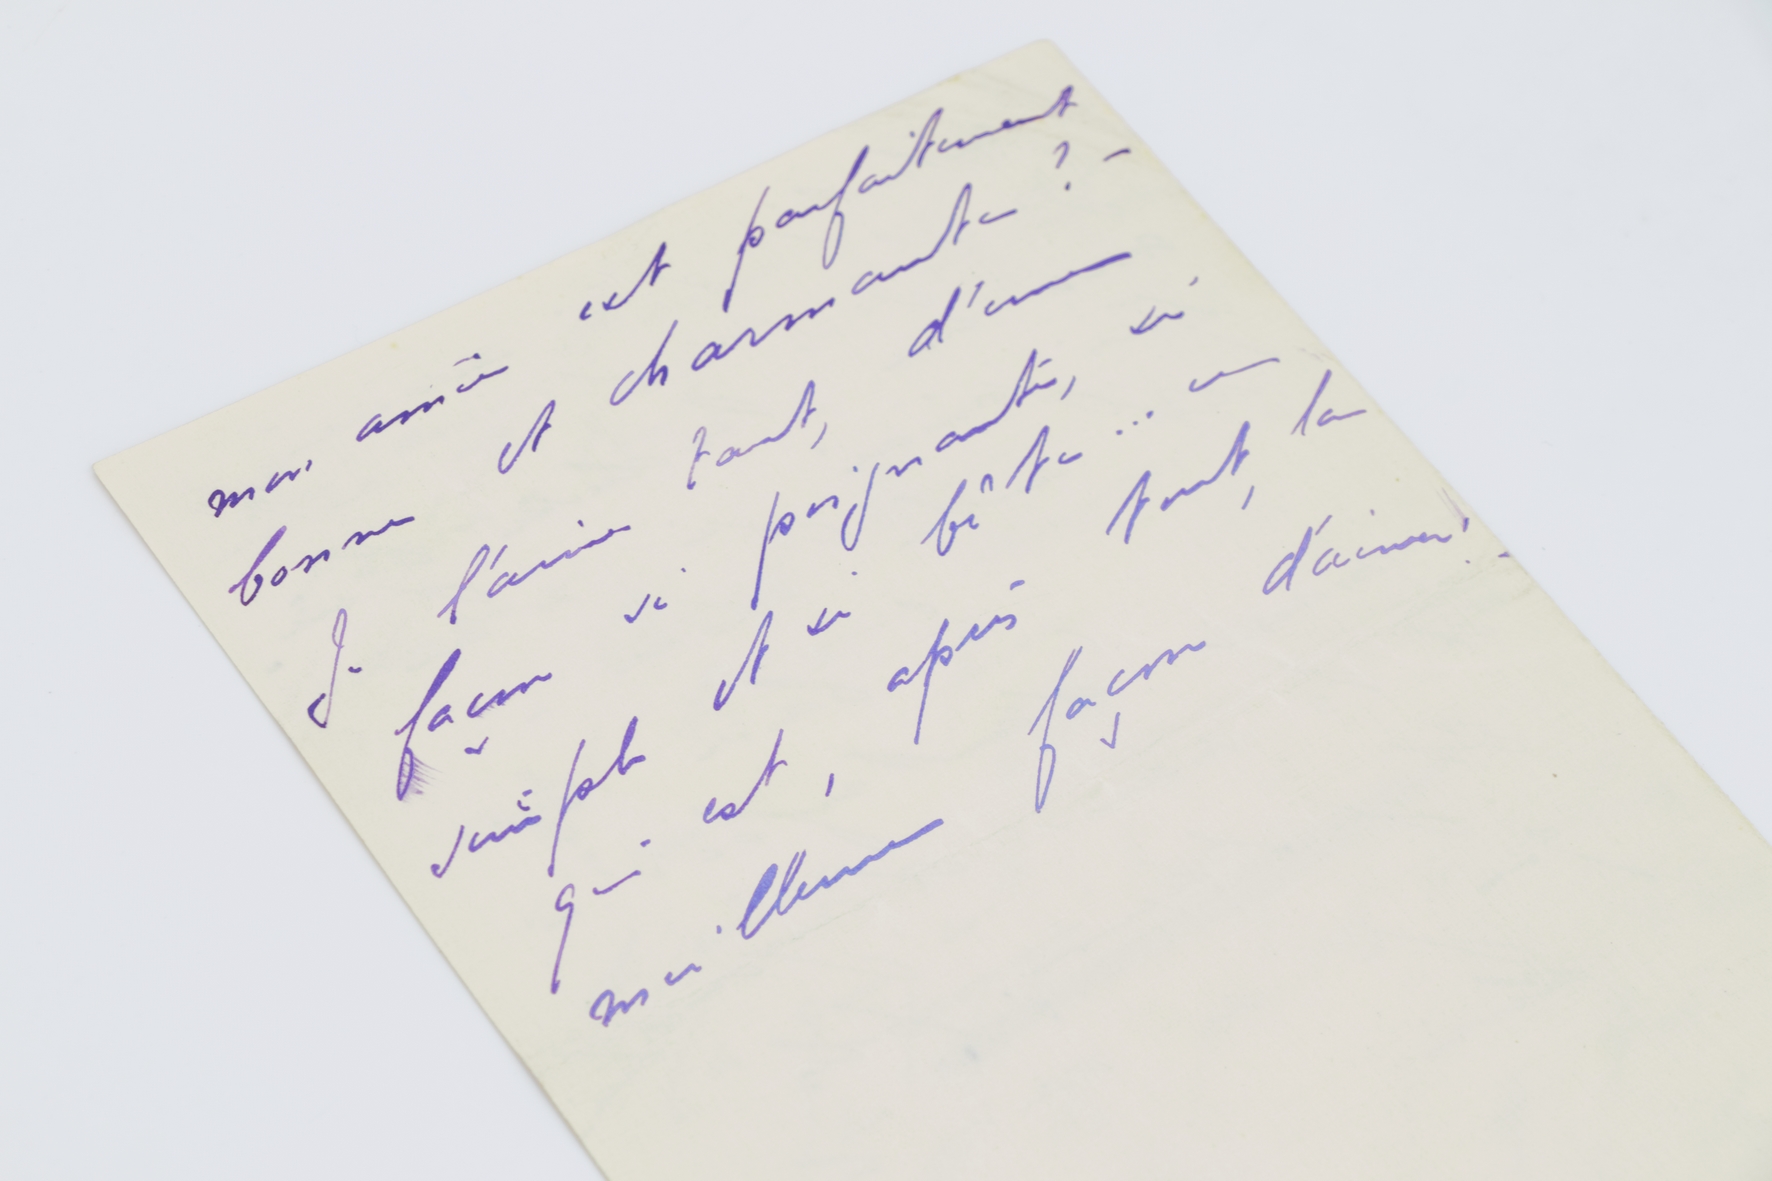 mon amie est parfaitement
bonne et charmante ? –
Je l'aime tant, d'une
façon si poignante, si
simple et si bête ... ce
qui est, après tout, la
meilleure façon d'aimer ! –